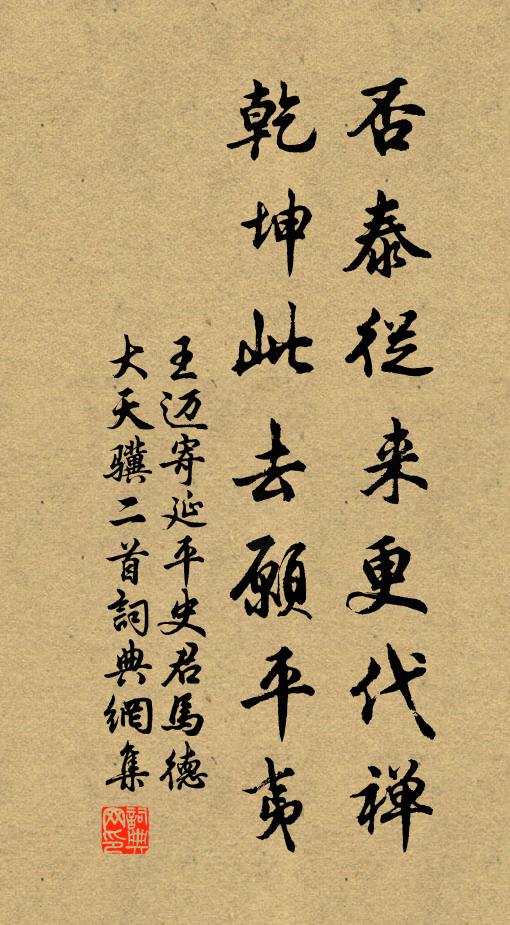 否泰從来更代禅
乾坤此去願平夷
王迈寄延平史君馬德
大天骥二首詞典網集
詞典网印